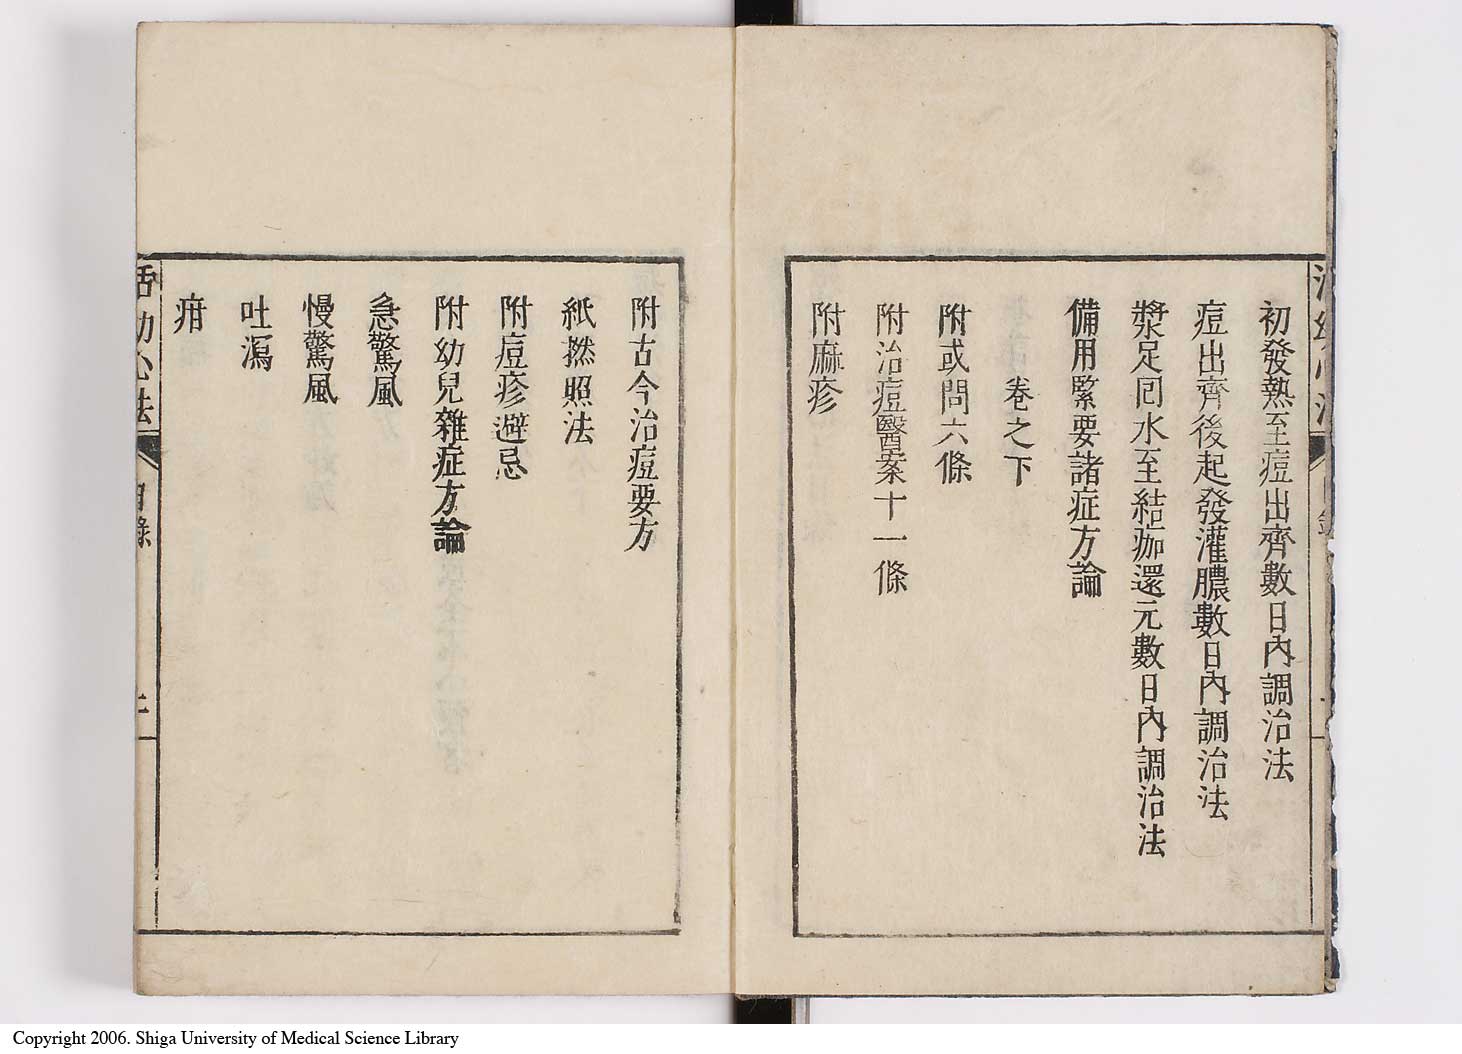 初發熱至痘出齊數日內調治法
痘出齊後起發灌膿數日內調治法
漿足囘水至結痂還元數日內調治法
備用緊要諸症方論
卷之下
附或問六條
附治痘醫案十一條
附麻疹
附古今治痘要方
紙撚照法
附痘疹避忌
附幼兒雜症方論
急驚風
慢驚風
吐瀉
疳
活幼心法
目錄
二
Copyright 2006. Shiga University of Medical Science Library